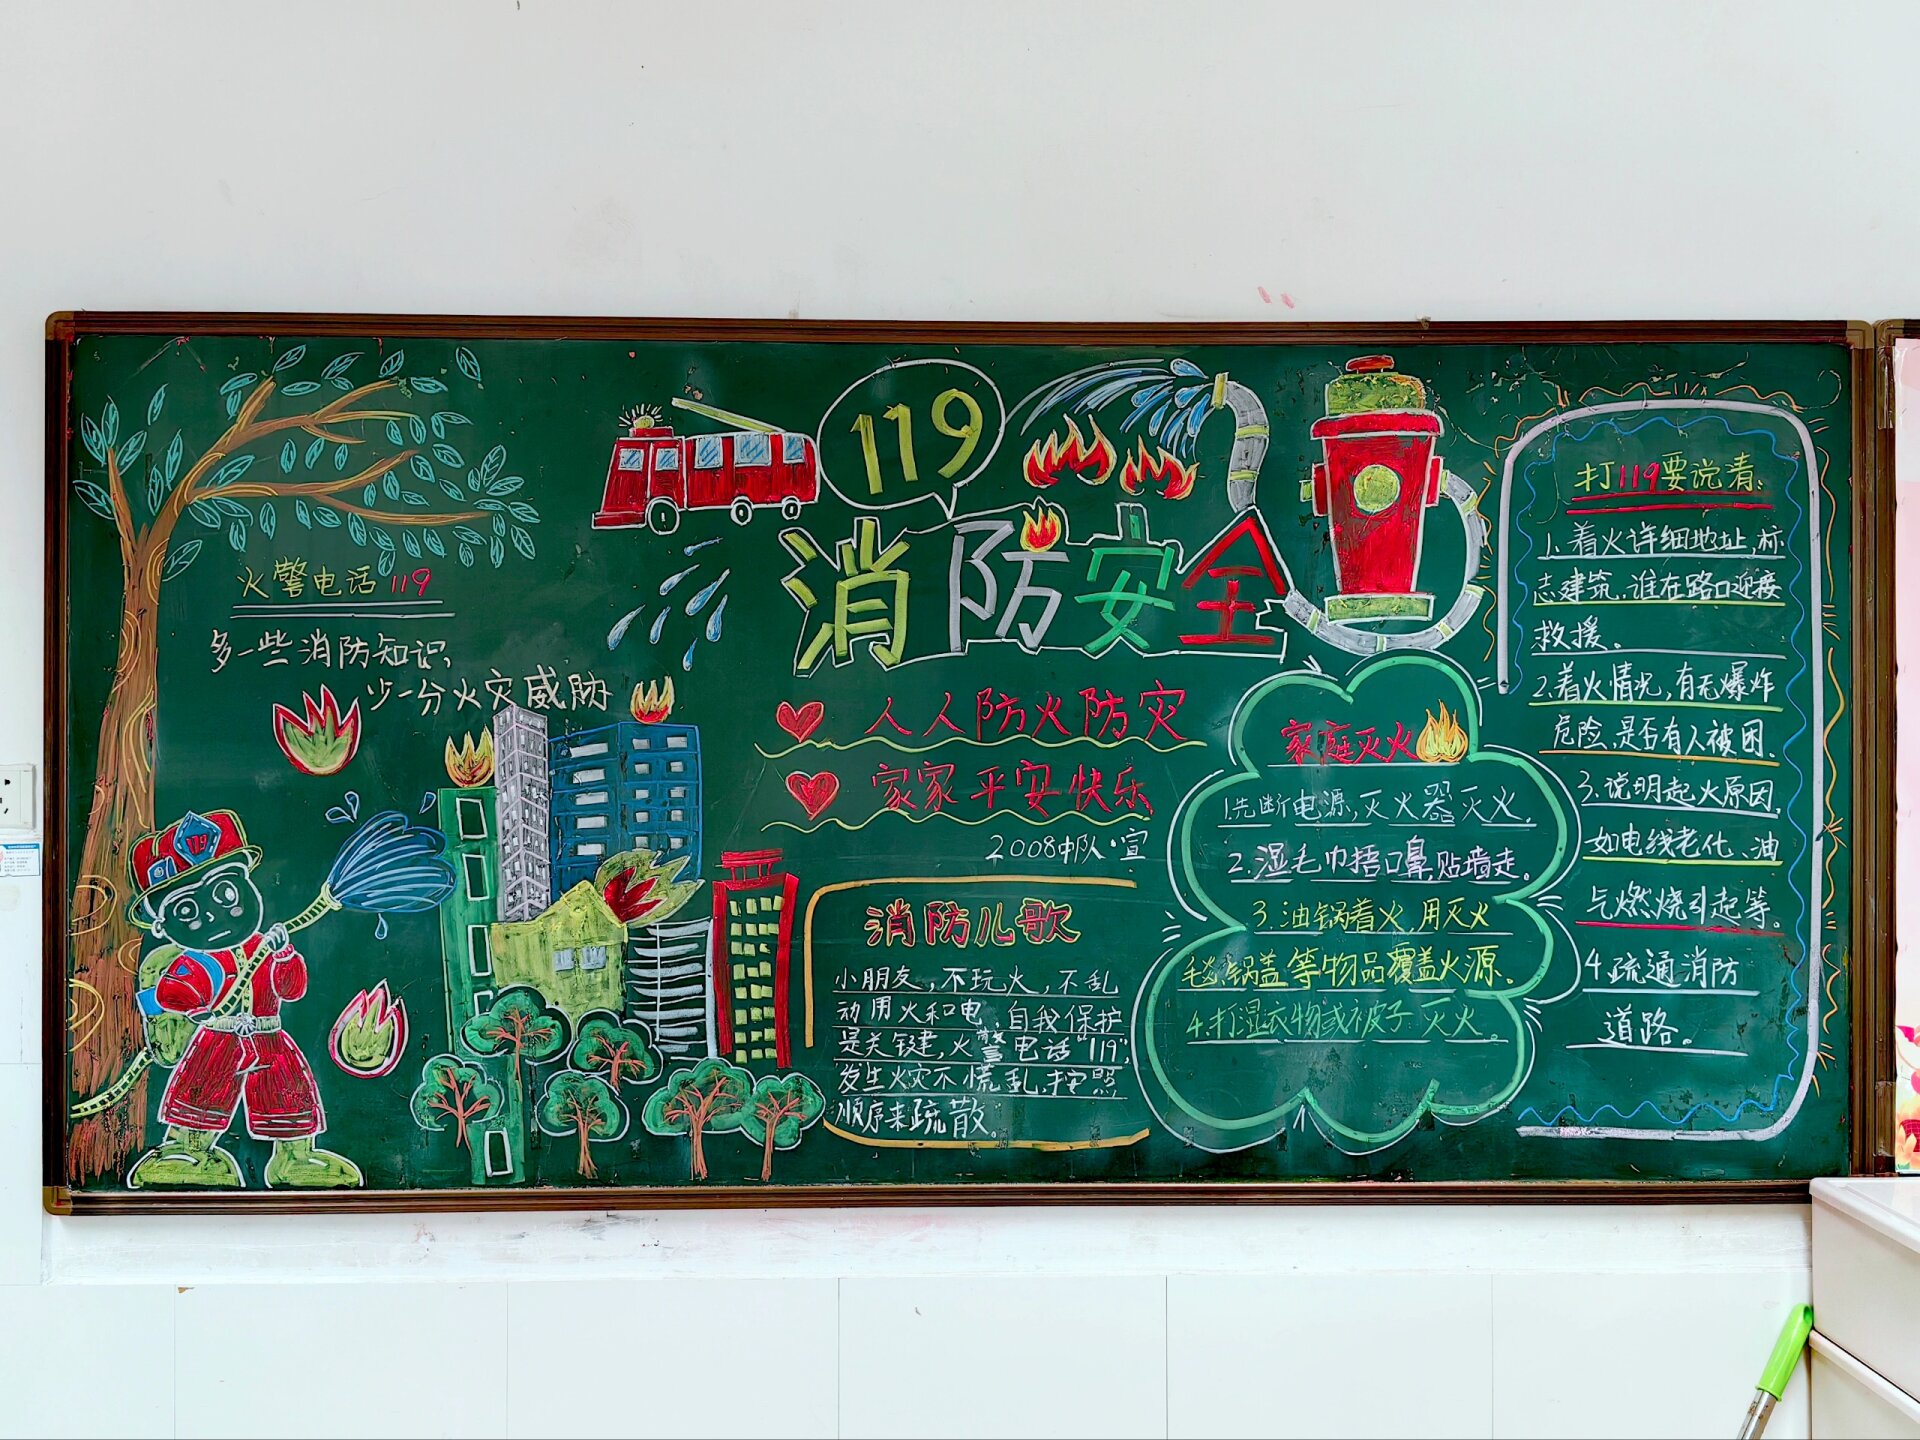 火警电话119
多一些消防知识,
少一分火灾威胁
119
119
消防安全
人人防火防灾
家家平安快乐
2008中队·宣
消防儿歌
小朋友,不玩火,不乱
动用火和电,自我保护
是关键,火警电话"119",
发生火灾不慌乱,按照
顺序来疏散。
家庭灭火
1.先断电源,灭火器灭火.
2.湿毛巾捂口鼻,贴墙走。
3.油锅着火,用灭火
毯、锅盖等物品覆盖火源、
4.打湿衣物或被子灭火。
打119要说清:
1.着火详细地址,标
志建筑,谁在路口迎接
救援。
2.着火情况,有无爆炸
危险,是否有人被困、
3.说明起火原因,
如电线老化、油
气燃烧引起等。
4.疏通消防
道路。